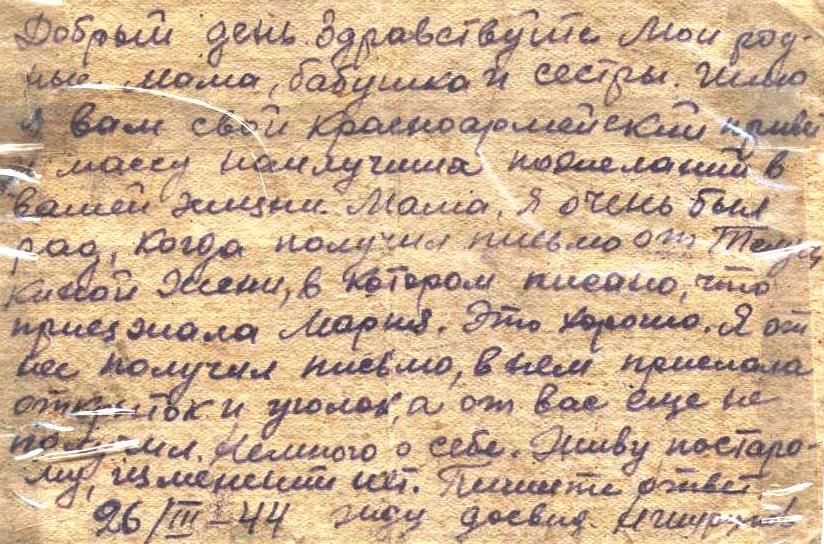 Добрый день. Здравствуйте Мои род-
ные мама, бабушка и сестры. Шлю
я вам свой красноармейский привет
и массу наилучших пожеланий в
вашей жизни. Мама, я очень был
рад, когда получил письмо от
Жени, в котором писано, что
приезжала Мария. Это хорошо. Я от
нее получил письмо, в нем прислала
открыток и уголок, а от вас еще не
получил. Немного о себе. Живу постаро-
му, изменений нет. Пишите ответ
26/III-44 жду досвид.